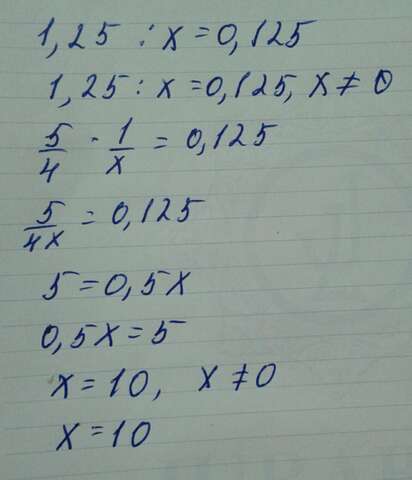 1,25 : x = 0,125
1,25 : x = 0,125, x ≠ 0
5/4 · 1/x = 0,125
5/4x = 0,125
5 = 0,5x
0,5x = 5
x = 10, x ≠ 0
x = 10